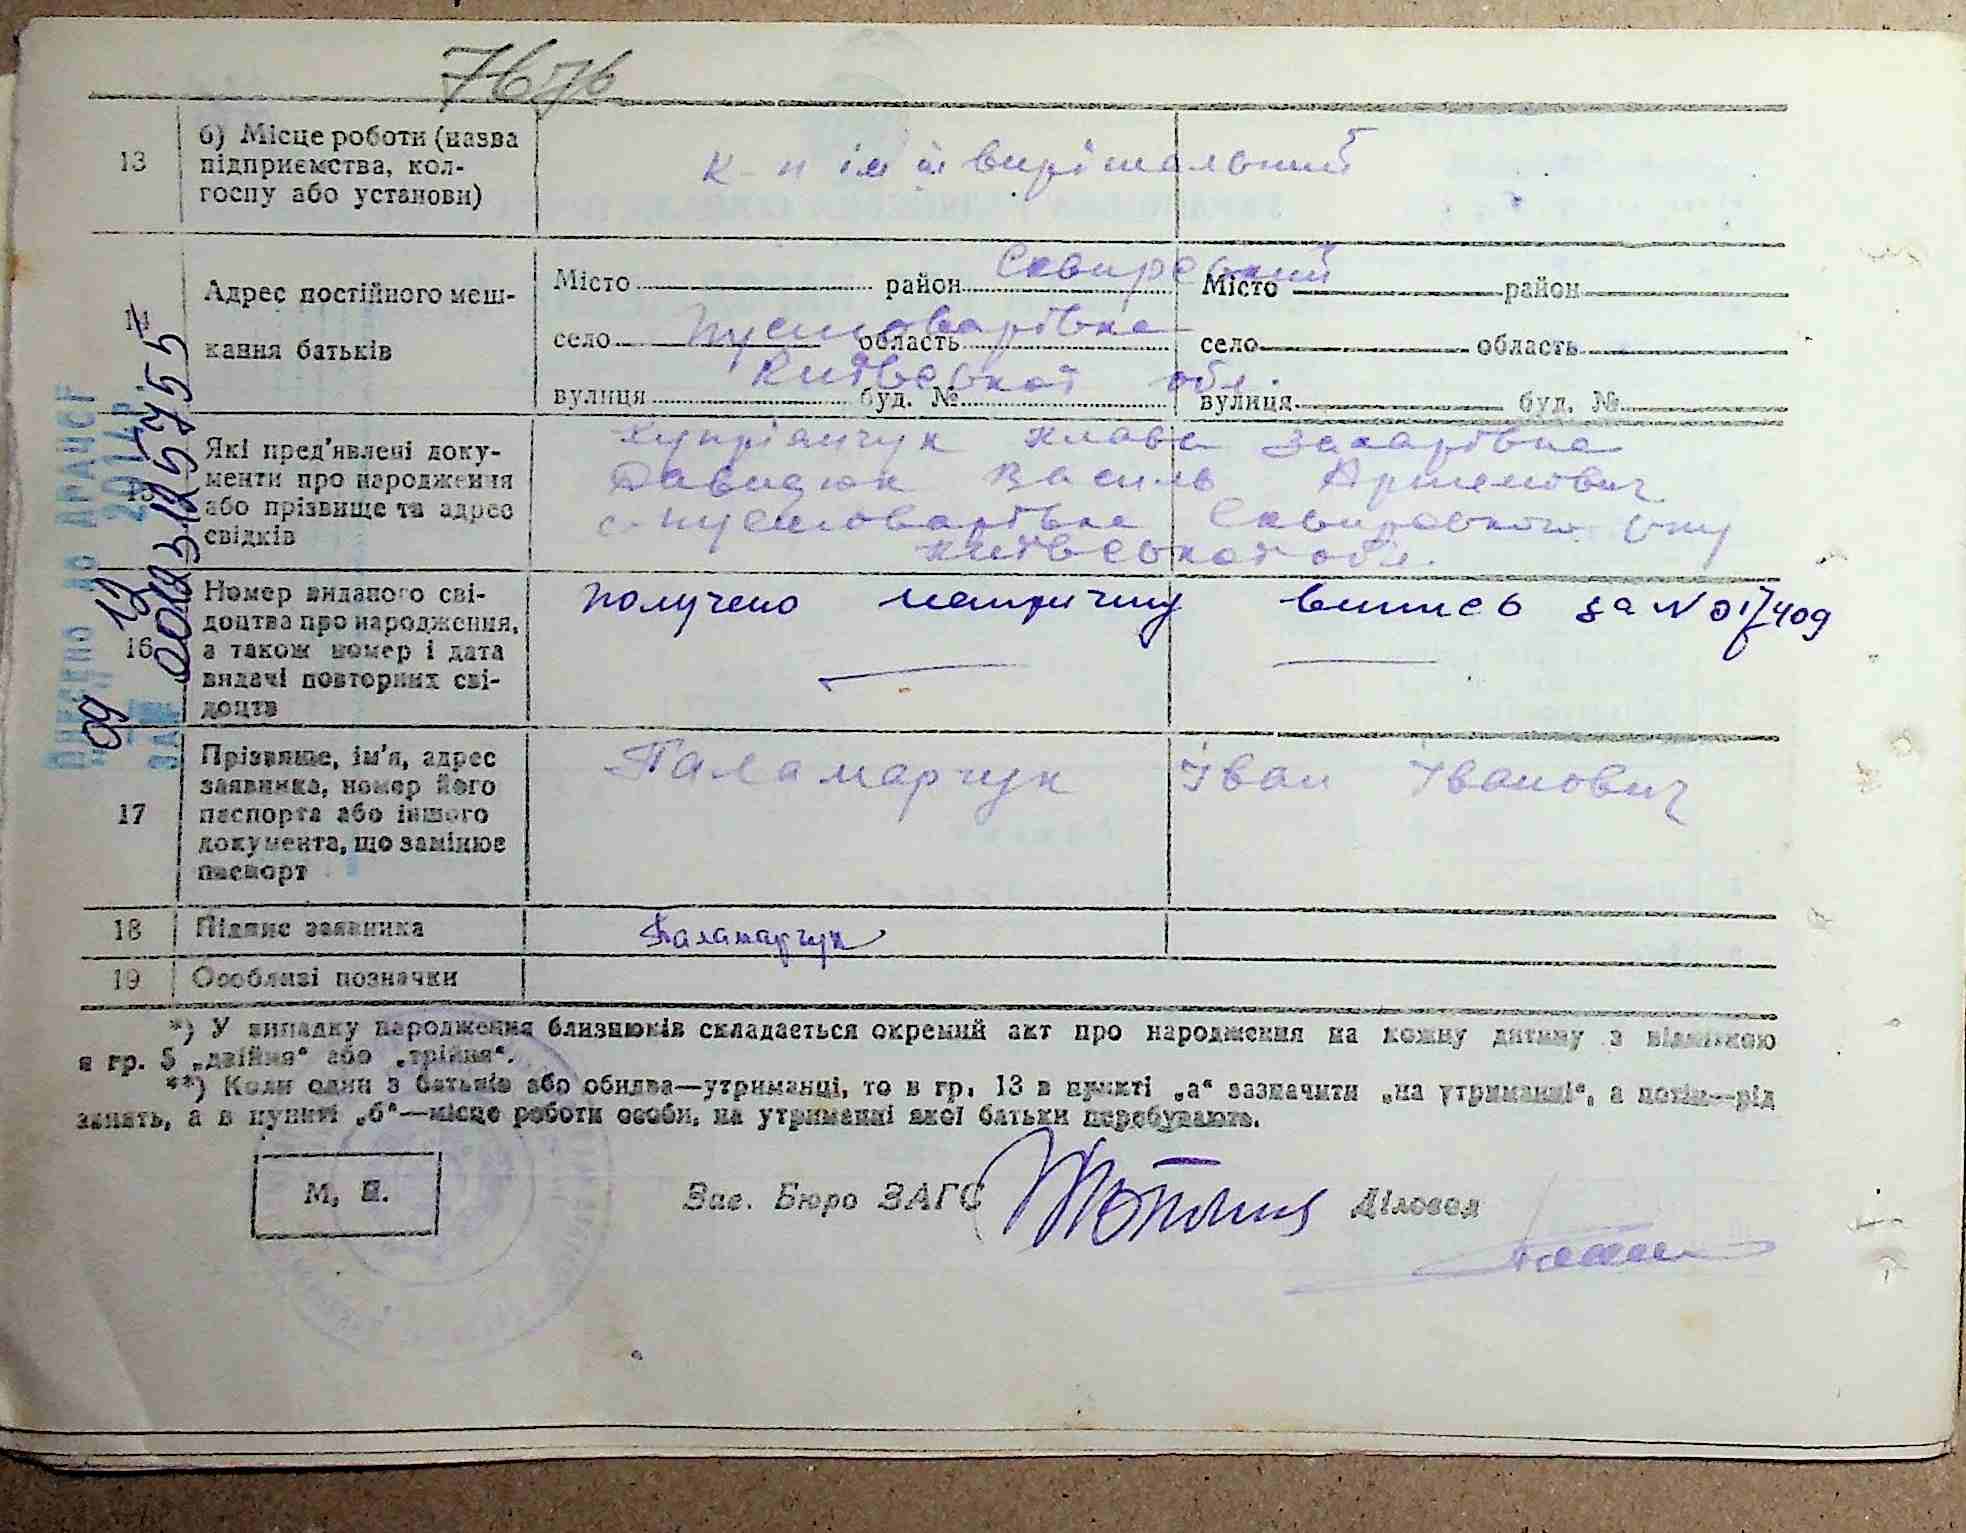 13
б) Місце роботи (назва
підприємства, кол-
госпу або установи)
к-п ім
вирішальний
14
Адрес постійного меш-
кання батьків
Місто район Сквирський
село Пустоварівка область
Київської обл.
вулиця буд. №
Місто район
село область
вулиця буд. №
15
Які пред'явлені доку-
менти про народження
або прізвище та адрес
свідків
Купріянчук Клава Захарівна
Давидюк Василь Артемович
с. Пустоварівка Сквирського р-ну
Київської обл.
16
Номер виданого сві-
доцтва про народження,
а також номер і дата
видачі повторних сві-
доцтв
Получено метричну випись за №
17
Прізвище, ім'я, адрес
заявника, номер його
паспорта або іншого
документа, що замінює
паспорт
Паламарчук Іван Іванович
18
Підпис заявника
Паламарчук
19
Особливі позначки
*) У випадку народження близнюків складається окремий акт про народження на кожну дитину з відміткою
в гр. 5 „двійня“ або „трійня“.
**) Коли один з батьків або обидва—утриманці, то в гр. 13 в пункті „а“ зазначити „на утриманні“, а потім—рід
занять, а в пункті „б“—місце роботи особи, на утриманні якої батьки перебувають.
М. П.
Зав. Бюро ЗАГС
Діловод
Внесено до ДРАЦСГ
09 12 2014 р.
за №
00123125755